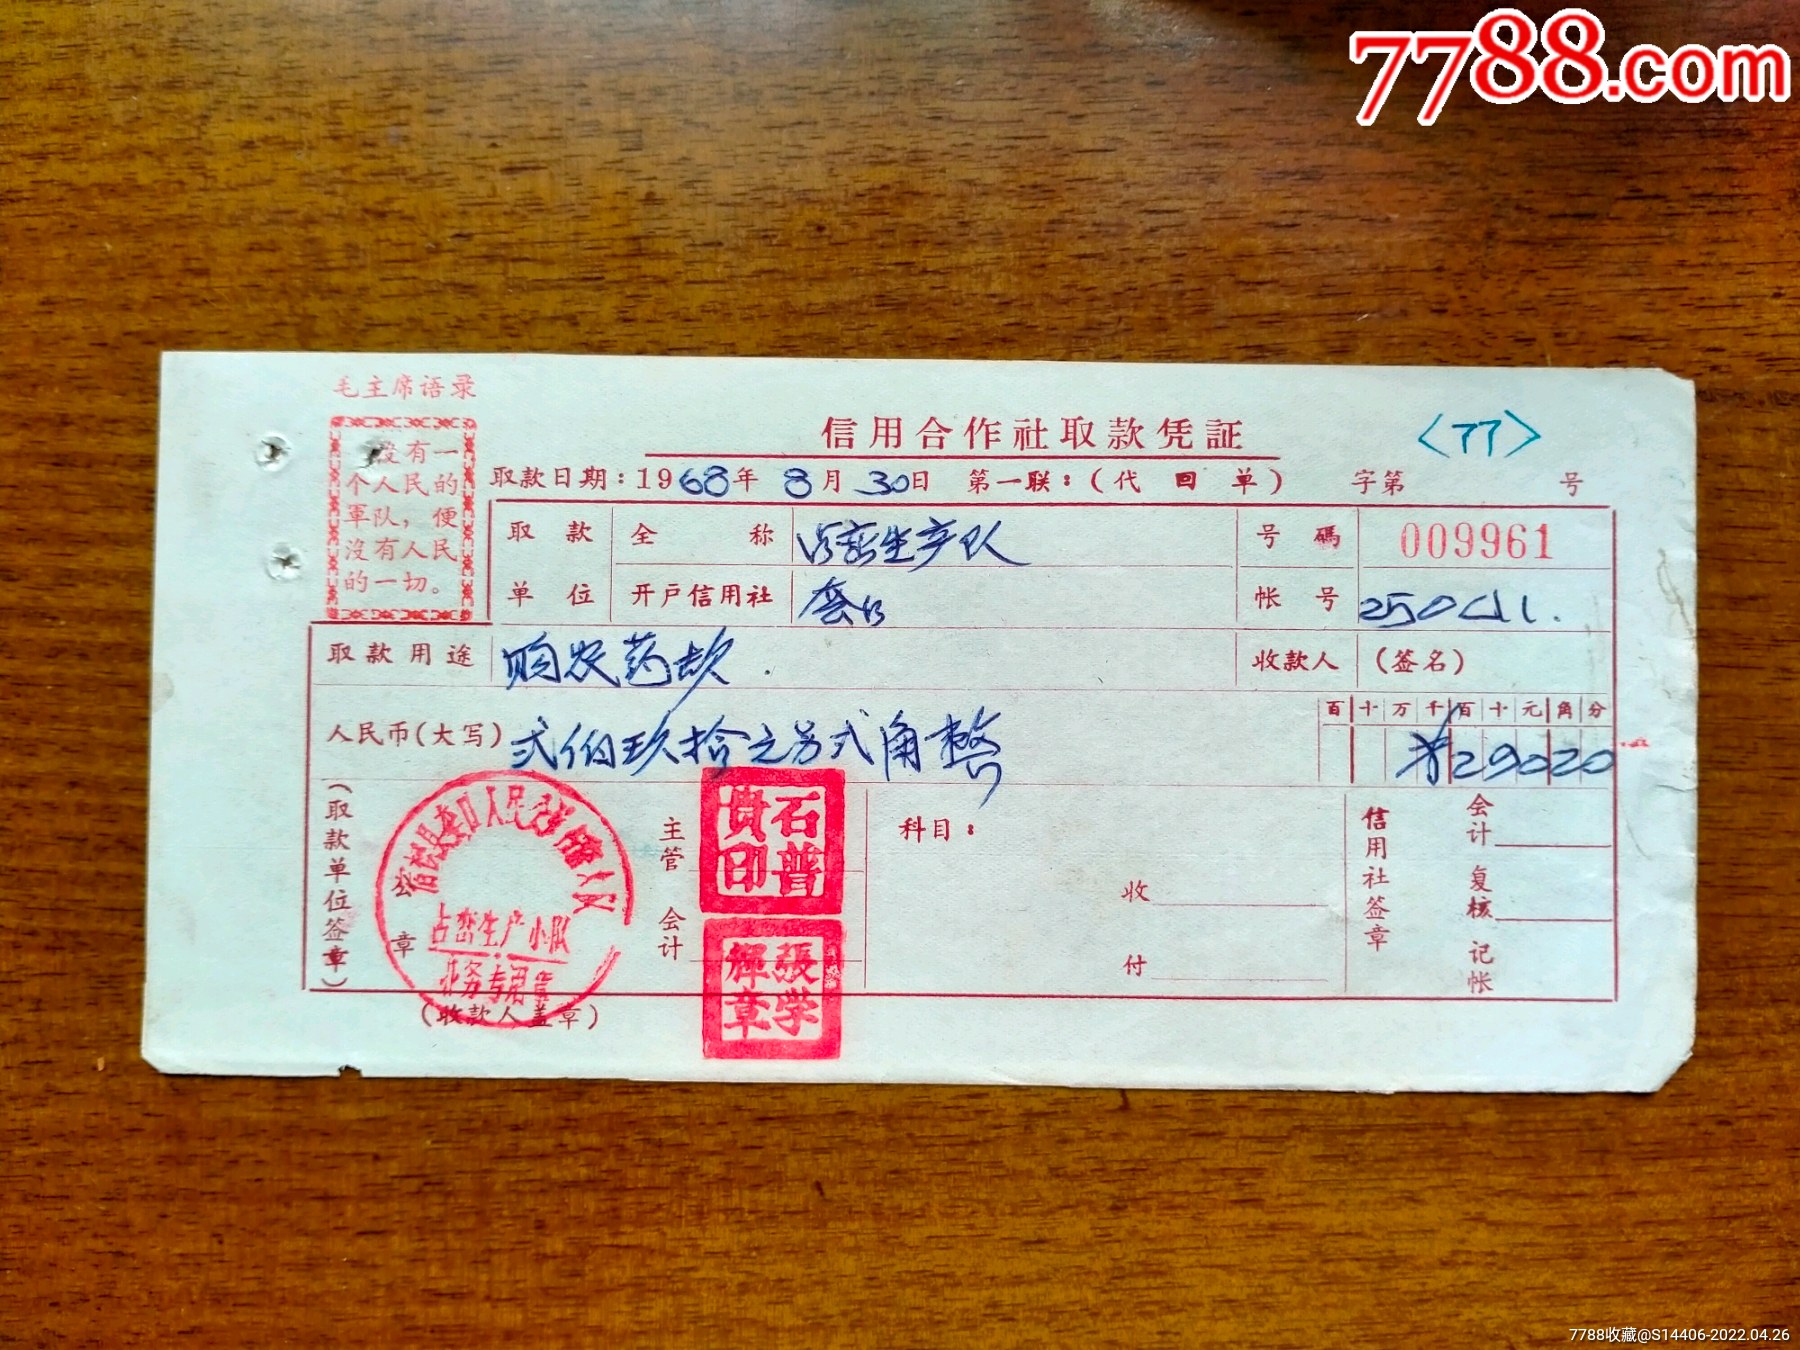 7788.com
毛主席语录
没有一
个人民的
軍队，便
沒有人民
的一切。
信用合作社取款凭证
〈77〉
取款日期：1968年 8月 30日 第一联：（代回单） 字第 号
取款 全称 占峦生产队 号碼 009961
单位 开户信用社 娄口 帐号 25011.
取款用途 购农药款. 收款人 （签名）
人民币（大写） 弍佰玖拾元另弍角整
百十万千百十元角分
¥29020
（取款单位签章）
公章
占峦生产小队
业务专用章
（收款人盖章）
主管
石普贵印
会计
張学輝章
科目：
收
付
信用社签章
会计
复核
记帐
7788收藏@S14406-2022.04.26